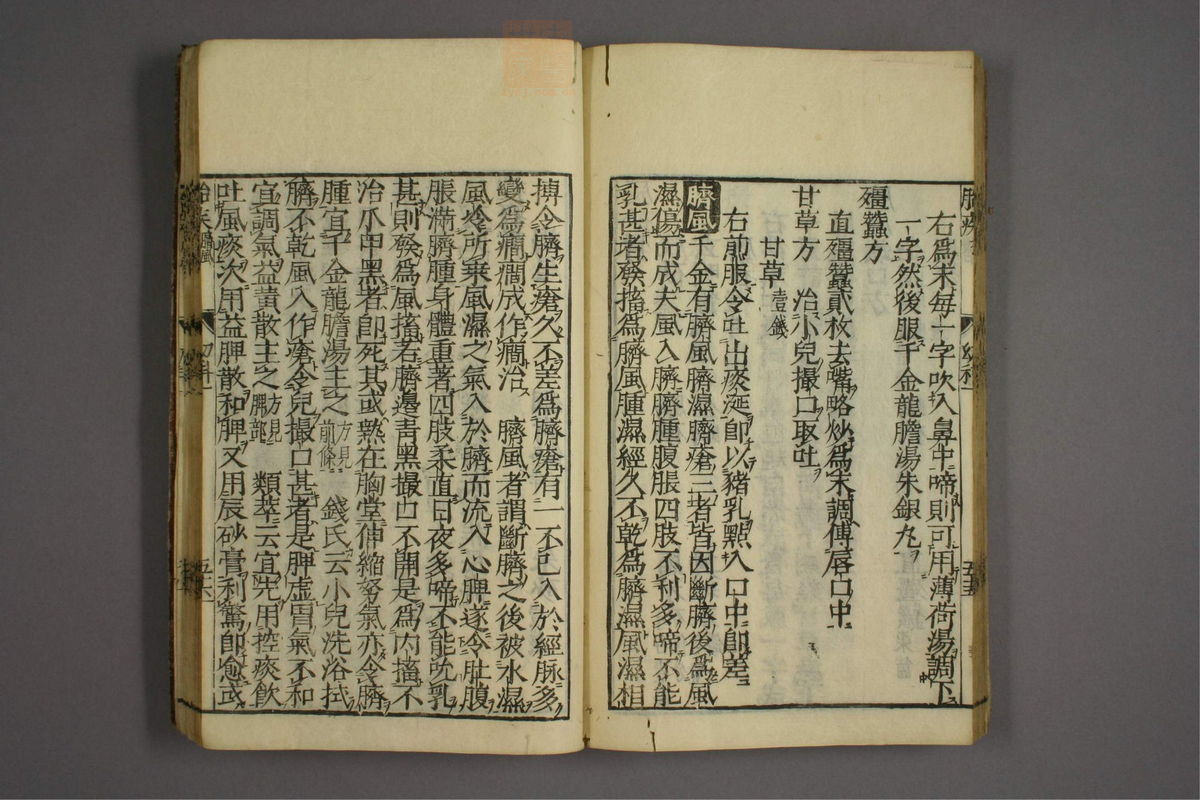 右爲末毎一字吹入鼻中啼則可用薄荷湯調下
一字然後服千金龍膽湯朱銀丸
殭蠶方
直殭蠶貳枚去觜略炒爲末調傅唇口中
甘草方　治小兒撮口取吐
甘草壹錢
右煎服令吐出痰涎卽以豬乳點入口中卽差
臍風千金有臍風臍濕臍瘡三者皆因斷臍後爲風
濕傷而成夫風入臍臍腫腹脹四肢不利多啼不能
乳甚者發搐爲臍風腫濕經久不乾爲臍濕風濕相
五十五
搏令臍生瘡久不差爲臍瘡有一不已入於經脉多
變爲癎癎成作癎治　臍風者謂斷臍之後被水濕
風冷所乗風濕之氣入於臍而流入心脾遂令肚腹
脹滿臍腫身體重著四肢柔直日夜多啼不能吮乳
甚則發爲風搐若臍邊青黑撮口不開是爲内搐不
治爪甲黑者卽死其或熱在胸堂伸縮努氣亦令臍
腫宜千金龍膽湯主之方見前條　錢氏云小兒洗浴拭
臍不乾風入作瘡令兒撮口甚者是脾虚胃氣不和
宜調氣益黄散主之方見脾部　類萃云宜先用控痰飲
吐風痰次用益脾散和脾又用辰砂膏利驚卽愈或
五十六